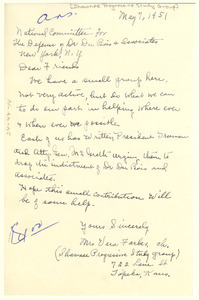 ans.
(Shawnee Progressive Study Group)
May 7, 1951
National Committee For
The Defense of Dr Du Bois & associates
New York N.Y
Dear Friends
We have a small group here,
not very active, but do what we can
to do our part in helping where ever
& when ever we possible
Each of us has written President Truman
and Atty Gen, McGrath urging them to
drop the indictment of Dr Du Bois and
associates.
Hope this small contribution will
be of some help.
Yours Sincerely
Mrs Vera Farber, ch.
(Shawnee Progressive Study group)
722 Lane St
Topeka, Kans.